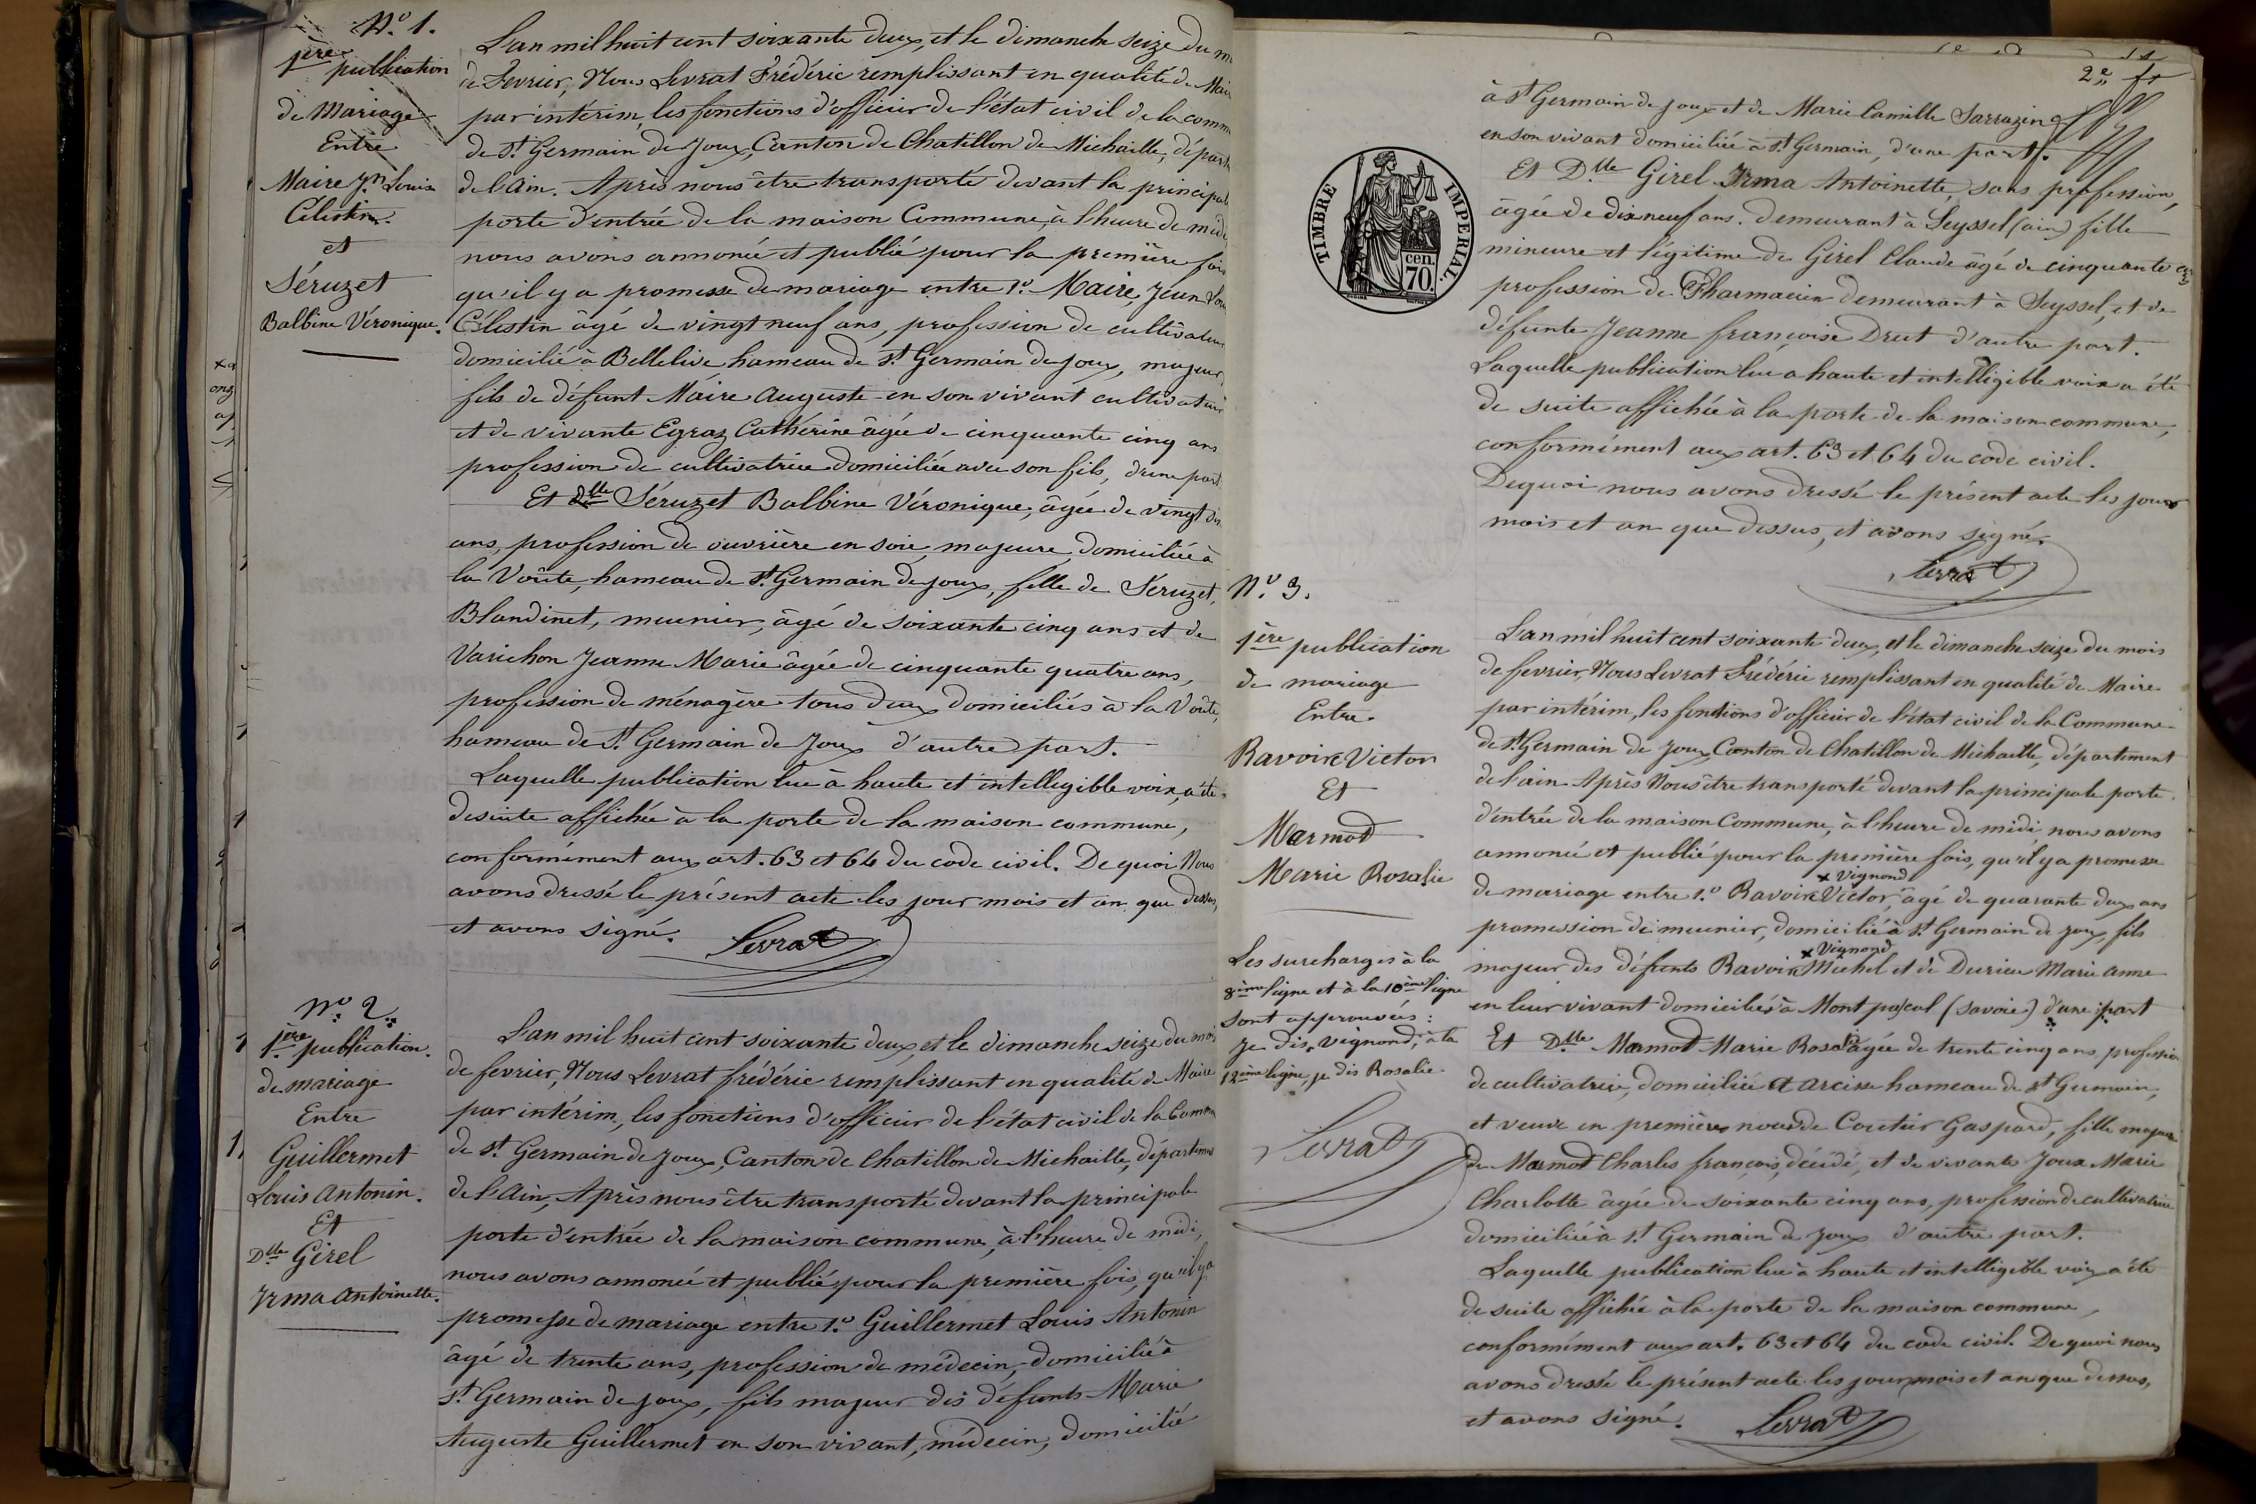 N.º 1.
1ère publication
de Mariage
Entre
Maire Jn Louis
Célestin.
et
Séruzet
Balbine Véronique.
L'an mil huit cent soixante deux, et le dimanche seize du
de Fevrier, Nous Levrat Frédéric remplissant en qualité de Maire
par intérim, les fonctions d'officier de l'état civil de la comm
de St Germain de Joux, Canton de Chatillon de Michaille, départ
de l'Ain. Après nous être transporté devant la principale
porte d'entrée de la maison Commune, à l'heure de midi
nous avons annoncé et publié pour la première fois
qu'il y a promesse de mariage entre 1.º Maire, Jean Lou
Célestin âgé de vingt neuf ans, profession de cultivateur
domicilié à Bellelive hameau de St Germain de Joux, majeur,
fils de défunt Maire Auguste en son vivant cultivateur
et de vivante Egraz Cathérine âgée de cinquante cinq ans
profession de cultivatrice domiciliée avec son fils, d'une part
Et Dlle Séruzet Balbine Véronique, âgée de vingt
ans, profession de ouvrière en soie, majeure, domiciliée à
la Voûte, hameau de St Germain de Joux, fille de Séruzet,
Blandinet, meunier, âgé de soixante cinq ans et de
Varichon Jeanne Marie âgée de cinquante quatre ans,
profession de ménagère tous deux domiciliés à la Voûte,
hameau de St Germain de Joux d'autre part.
Laquelle publication lue à haute et intelligible voix, a été
desuite affichée à la porte de la maison commune,
conformément aux art. 63 et 64 du code civil. De quoi Nous
avons dressé le présent acte les jour mois et an que dessus,
et avons signé.
Levrat
N.º 2.
1ère publication.
de mariage
Entre
Guillermet
Louis Antonin.
Et
Dlle Girel
Irma Antoinette.
L'an mil huit cent soixante deux, et le dimanche seize du mois
de fevrier, Nous Levrat frédéric remplissant en qualité de Maire
par intérim, les fonctions d'officier de l'état civil de la Comm
de St Germain de Joux, Canton de Chatillon de Michaille, département
de l'Ain, Après nous être transporté devant la principale
porte d'entrée de la maison commune, à l'heure de midi,
nous avons annoncé et publié pour la première fois, qu'il y a
promesse de mariage entre 1.º Guillermet Louis Antonin
âgé de trente ans, profession de médecin, domicilié à
St Germain de Joux, fils majeur des défunts Marie
Auguste Guillermet en son vivant, médecin, domicilié
2e ft
à St Germain de Joux et de Marie Camille Sarrazin
en son vivant domiciliée à St Germain, d'une part.
Et Dlle Girel Irma Antoinette, sans profession,
âgée de dix neuf ans. demeurant à Seyssel (ain) fille
mineure et légitime de Girel Claude âgé de cinquante
profession de Pharmacien demeurant à Seyssel, et de
défunte Jeanne françoise Drut d'autre part.
Laquelle publication lue a haute et intelligible voix a été
de suite affichée à la porte de la maison commune,
conformément aux art. 63 et 64 du code civil.
Dequoi nous avons dressé le présent acte les jour
mois et an que dessus, et avons signé.
Levrat
TIMBRE IMPERIAL
cen.
70.
N.º 3.
1ère publication
de mariage
Entre.
Ravoire Victor
Et
Marmod
Marie Rosalie
Les surcharges à la
8ème ligne et à la 10ème ligne
sont approuvées :
je dis, vignond, à la
12ème ligne, je dis Rosalie.
Levrat
L'an mil huit cent soixante deux, et le dimanche seize du mois
de fevrier, Nous Levrat Frédéric remplissant en qualité de Maire
par intérim, les fonctions d'officier de l'état civil de la Commune
de St Germain de Joux, Canton de Chatillon de Michaille, département
de l'ain Après Nous être transporté devant la principale porte
d'entrée de la maison Commune, à l'heure de midi nous avons
annoncé et publié pour la première fois, qu'il y a promesse
x Vignond
de mariage entre 1.º Ravoire Victor, âgé de quarante deux ans
promession de meunier, domicilié à St Germain de Joux, fils
x Vignond
majeur des défunts Ravoire Michel et de Durieu Marie Anne
en leur vivant domiciliés à Mont pascal (Savoie) d'une part
Et Dlle Marmod Marie Rosalie âgée de trente cinq ans, profession
de cultivatrice, domiciliée à arcisse hameau de St Germain,
et veuve en premières noces de Coutier Gaspard, fille majeure
de Marmod Charles françois, décédé, et de vivante Joux Marie
Charlotte âgée de soixante cinq ans, profession de cultivatrice
domiciliée à St Germain de Joux d'autre part.
Laquelle publication lue à haute et intelligible voix a été
de suite affichée à la porte de la maison commune,
conformément aux art. 63 et 64 du code civil. De quoi nous
avons dressé le présent acte les jour mois et an que dessus,
et avons signé.
Levrat